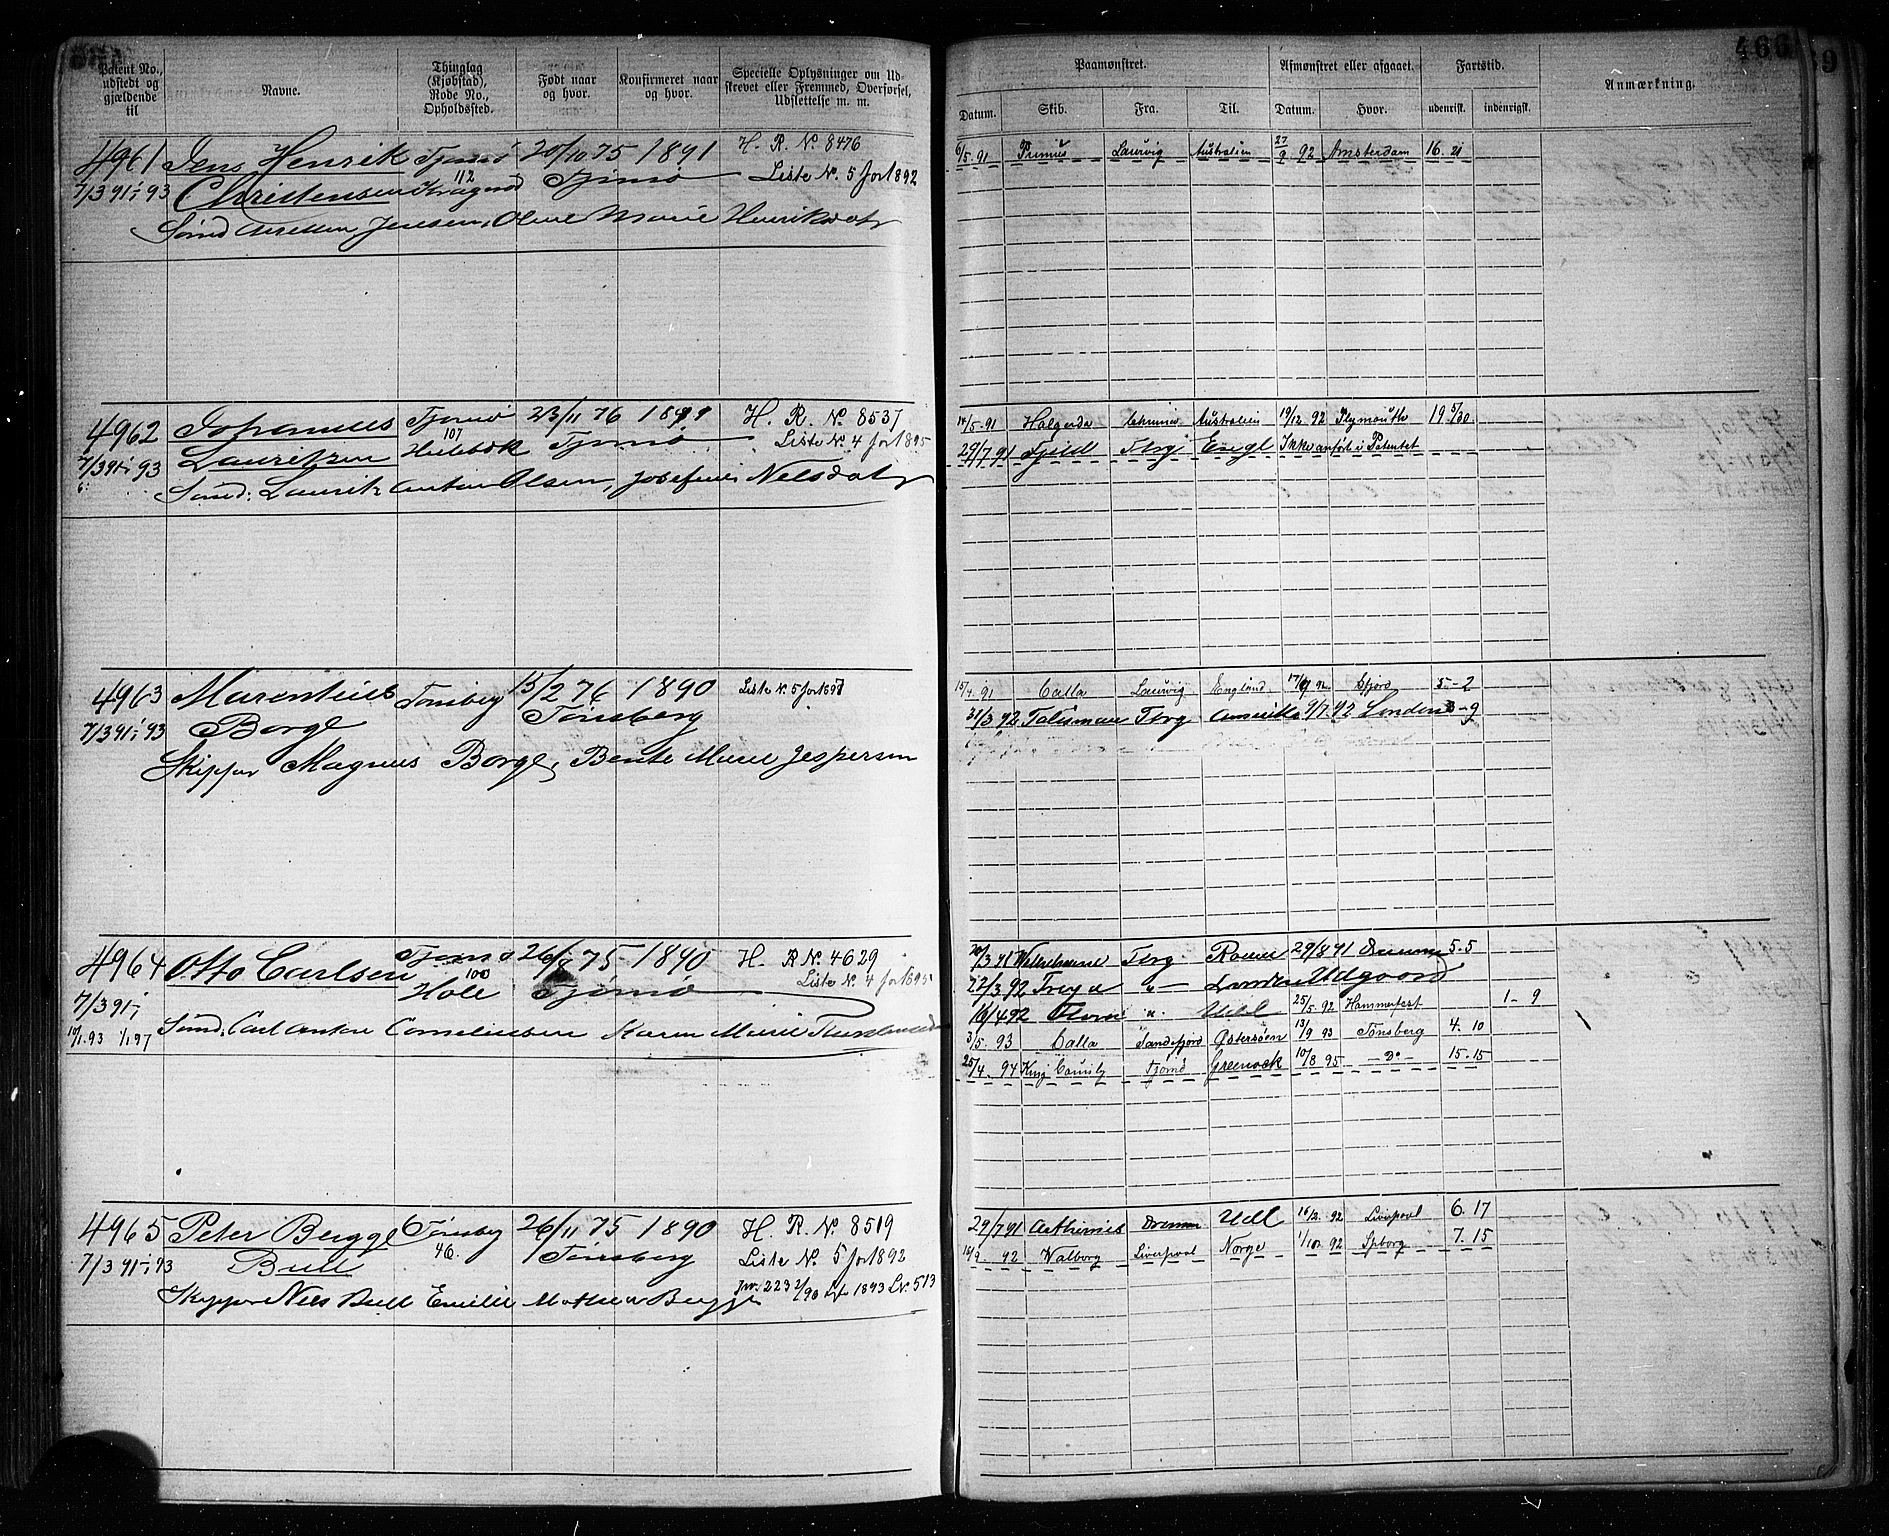 466
9
Patent No., udstedt og gjældende til
Navne.
Thinglag (Kjøbstad), Rode No., Opholdssted.
Født naar og hvor.
Konfirmeret naar og hvor.
Specielle Oplysninger om Udskrevet eller Fremmed, Overførsel, Udslettelse m. m.
Paamønstret.
Afmønstret eller afgaaet.
Fartstid.
Anmærkning.
Datum. Skib. Fra. Til. Datum. Hvor. udenrigst. indenrigst.
4961 Jens Henrik Tjømø 20/10 75 1891 H. R. No 8476
7/3 91 - 93 Christensen 112 Tjømø Liste No. 5 for 1892
Sømd Jensen, Oline Marie Henriksdatr
6/5. 91 Primus Laurvig Australien 27/9 92 Amsterdam 16. 21
4962 Johannes Tjømø 23/11 76 1891 H. R. No. 8537
7/3 91 - 93 Lauritzen 107 Tjømø Liste No. 4 for 1895
Sømd: Lauritz Anton Olsen, Josefine Nelsdatr
14/5. 91 Australien 19/12. 92 Plymouth 19 5/30
29/7 91 Fjeld Tbrg Engl Ikke anført i Patentet
4963 Marentius Tønsberg 15/2 76 1890 Liste No. 5 for 1897
7/3 91 - 93 Borge Tønsberg
Skipper Magnus Borge, Bente Marie Jespersen
15/4. 91 Calla Laurvig England 92 5 - 2
31/3 92 Talisman Tbrg Amerika 9/7. 92 London - 9
4964 Otto Carlsen Tjømø 75 1890 H. R. No. 4629
7/3 91 - 100 Hole Tjømø Liste No. 4 for 1895
10/1. 93 1/1 97 Sømd. Carl Anton Cornelius Karen Marie
91 Tbrg Rouen 29/8 91 5. 5
92 Freya " London Udgaard
16/4 92 " Udl 25/5. 92 Hammerfest 1 - 9
3/5. 93 Calla Sandefjord Østersøen 13/9 93 Tønsberg 4. 10
25/4. 94 King Tjømø Greenock 10/8 95 - Do - 15. 15
4965 Peter Bugge Tønsberg 26/11 75 1890 H. R. No. 8519
7/3 91 - 93 Bull 46. Tønsberg Liste No. 5 for 1892
Skipper Niels Bull Emilie Mathea Bugge 223 2/90 1893 513
29/7 91 Udl 92 Liverpool 6. 17
92 Valborg Liverpool Norge 1/10. 92 Spborg 7. 15